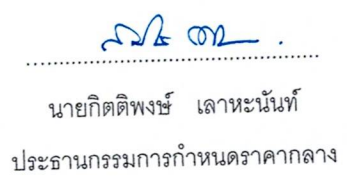 นายกิตติพงษ์ เลาหะนันท์
ประธานกรรมการกำหนดราคากลาง